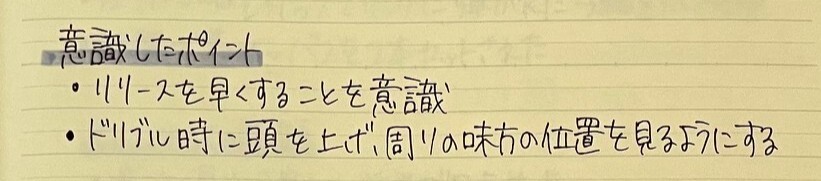 意識したポイント
・リリースを早くすることを意識
・ドリブル時に頭を上げ、周りの味方の位置を見るようにする